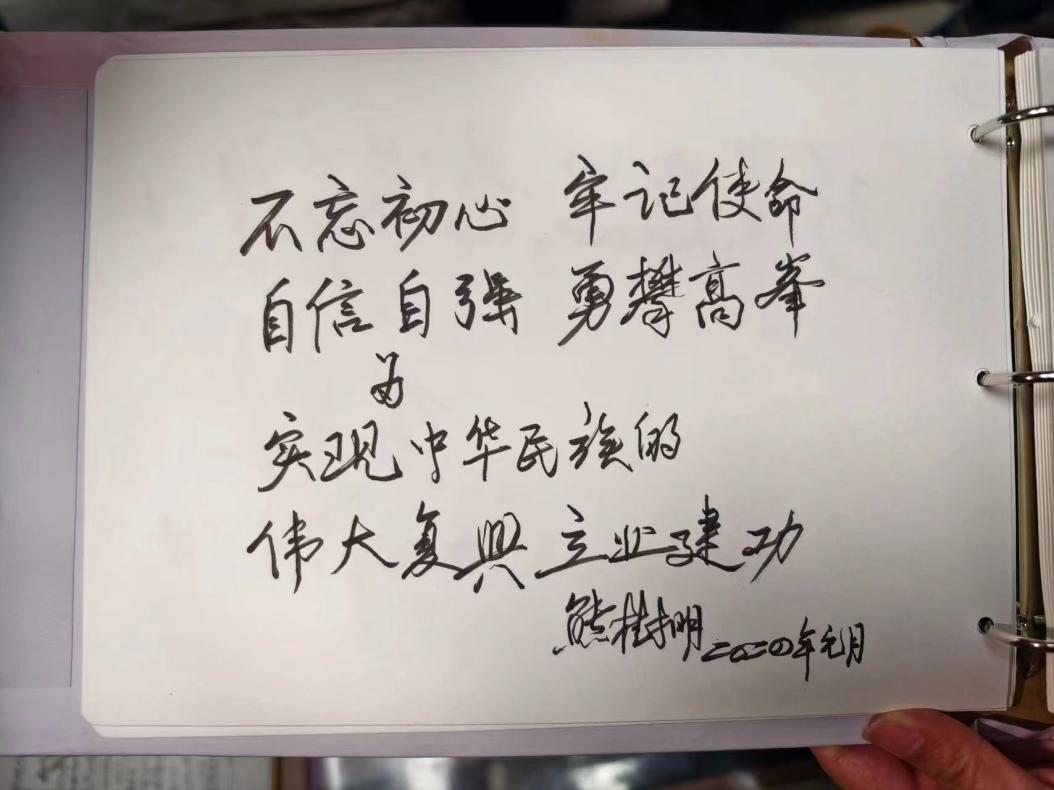 不忘初心 牢记使命
自信自强 勇攀高峯
为
实现中华民族的
伟大复興 立业建功
熊树明 二〇二〇年元月